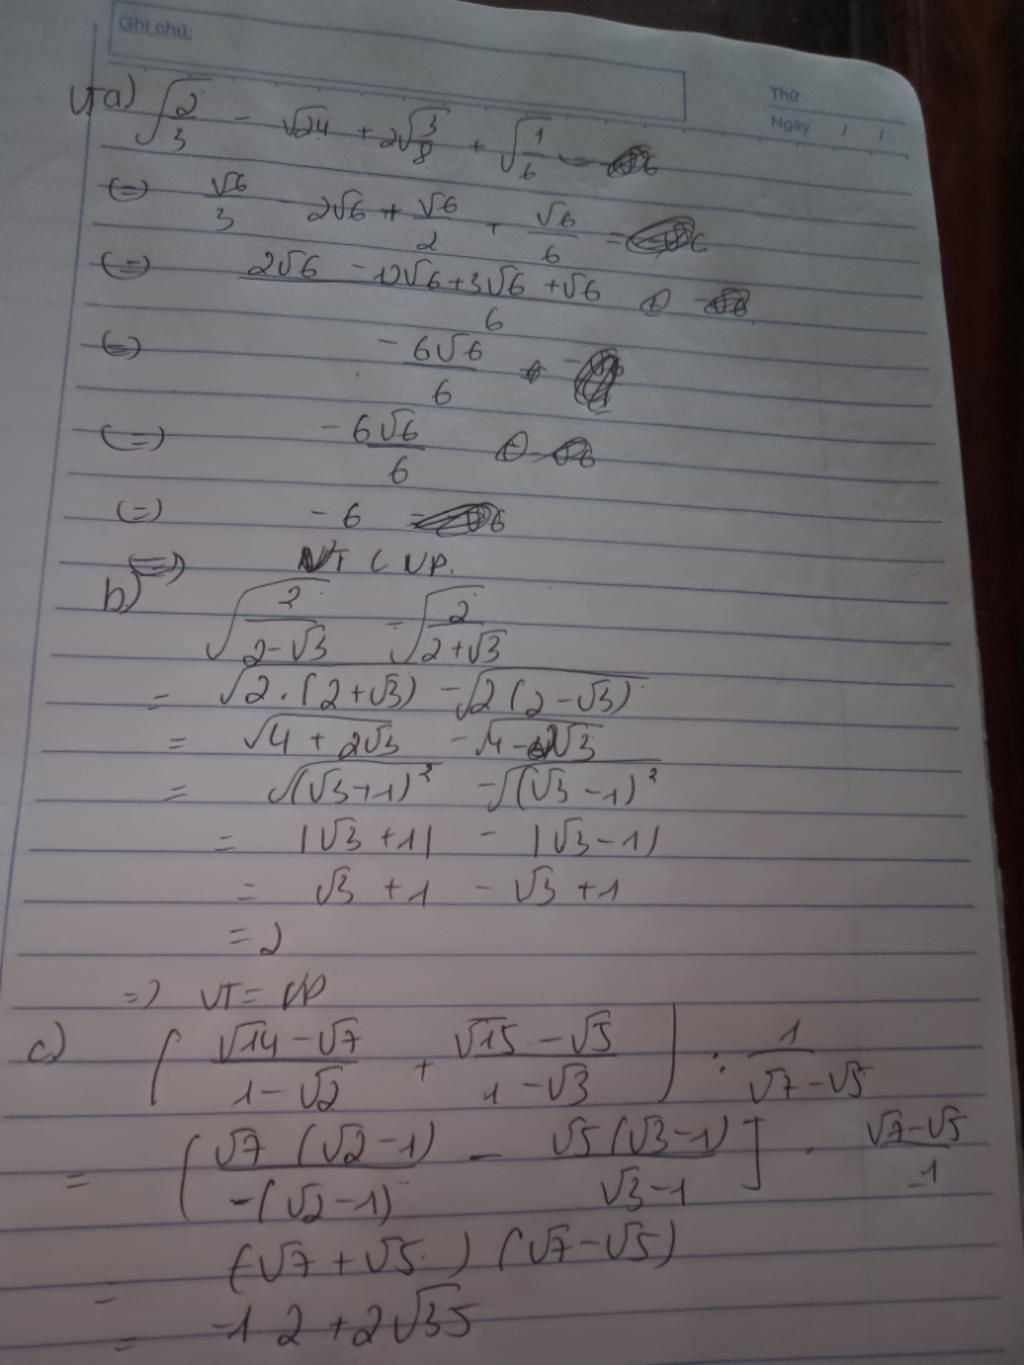 Ghi chú:
Thứ
Ngày / /
a) √(2/3) - √24 + 2√(3/8) + √(1/6)
(=) √6/3 2√6 + √6/2 + √6/6 =
(=) (2√6 - 12√6 + 3√6 + √6)/6
(=) - 6√6/6
(=) - 6√6/6
(=) - 6
=) VT < VP.
b) √(2/(2-√3)) - √(2/(2+√3))
= √(2.(2+√3)) - √(2(2-√3))
= √(4+2√3) - √(4-2√3)
= √((√3+1)²) - √((√3-1)²)
= |√3+1| - |√3-1|
= √3 + 1 - √3 + 1
= 2
=) VT = VP
c) ((√14-√7)/(1-√2) + (√15-√5)/(1-√3)) : 1/(√7-√5)
= [√7(√2-1)/-(√2-1) - √5(√3-1)/(√3-1)] . (√7-√5)/-1
= (√7+√5)(√7-√5)
= -12+2√35